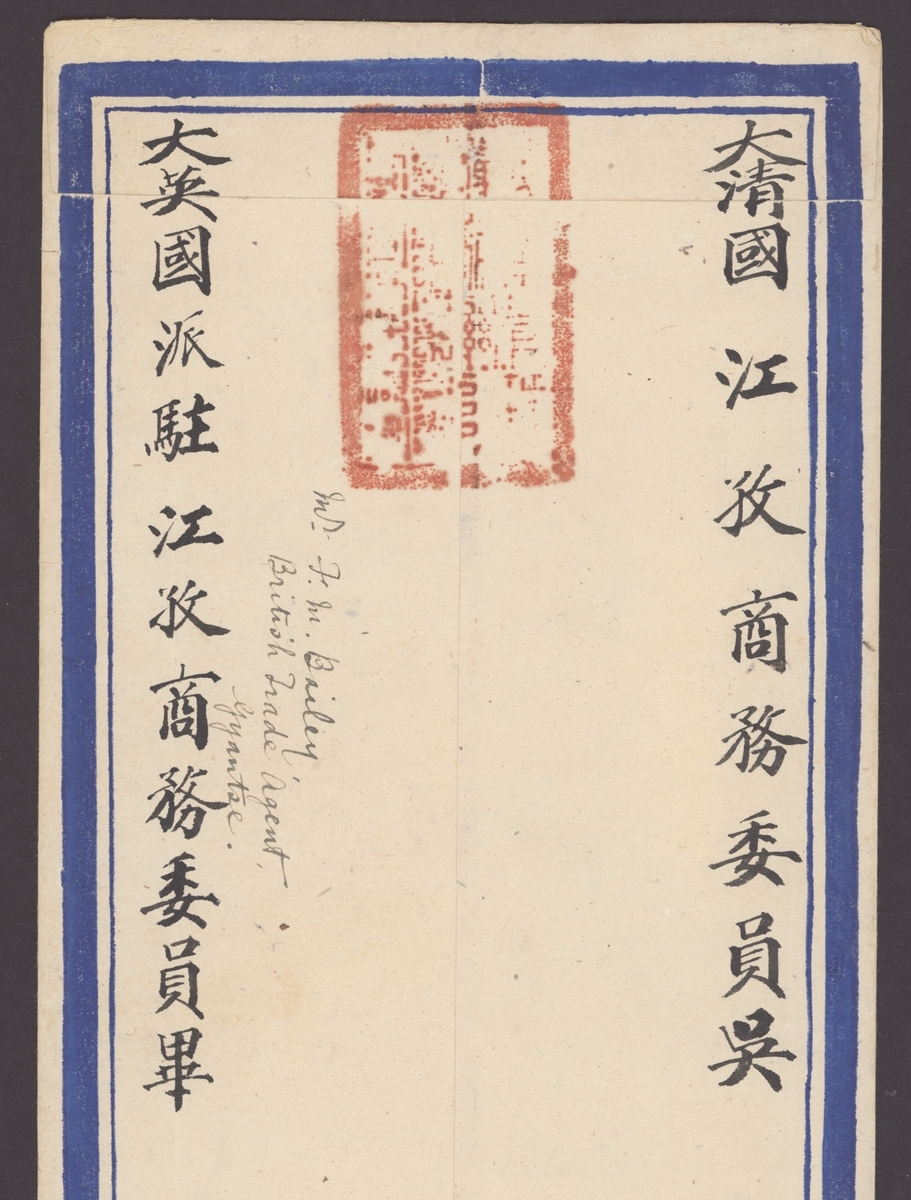 大清國江孜商務委員吳
Mr. F. M. Bailey
British Trade Agent,
Gyantse.
大英國派駐江孜商務委員畢